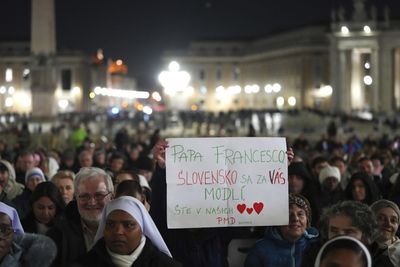 PAPA FRANCESCO
SLOVENSKO SA ZA VÁS
MODLÍ
STE V NAŠICH
PMD